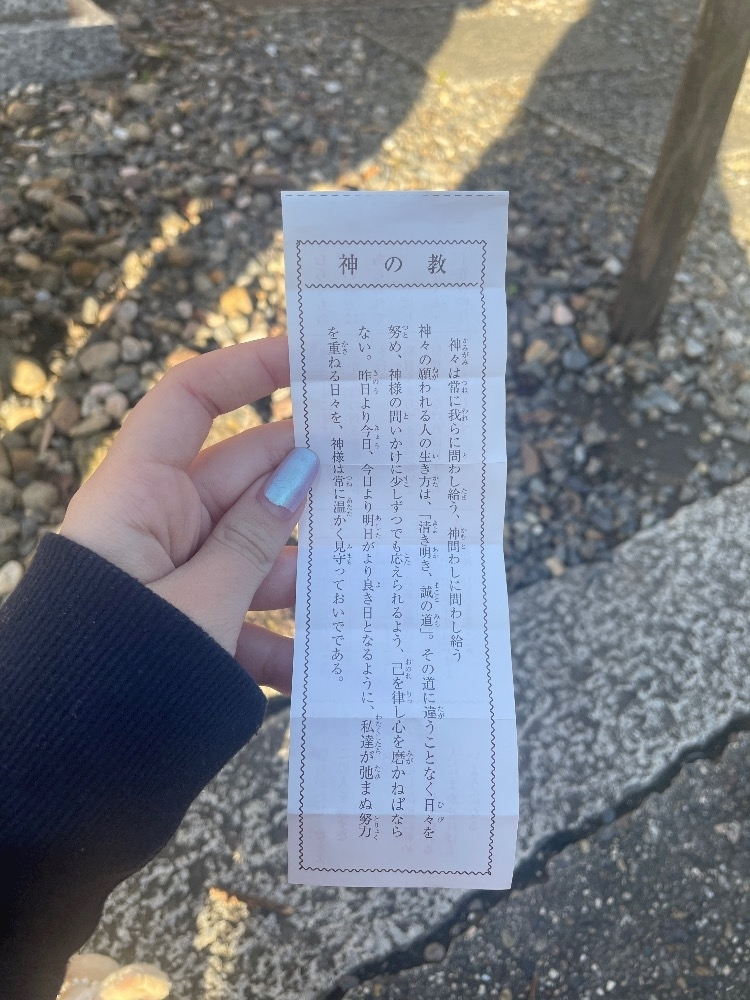 神の教
神々は常に我らに問わし給う、神問わしに問わし給う
神々の願われる人の生き方は、「清き明き、誠の道」。その道に違うことなく日々を
努め、神様の問いかけに少しずつでも応えられるよう、己を律し心を磨かねばなら
ない。昨日より今日、今日より明日がより良き日となるように、私達が弛まぬ努力
を重ねる日々を、神様は常に温かく見守っておいでである。